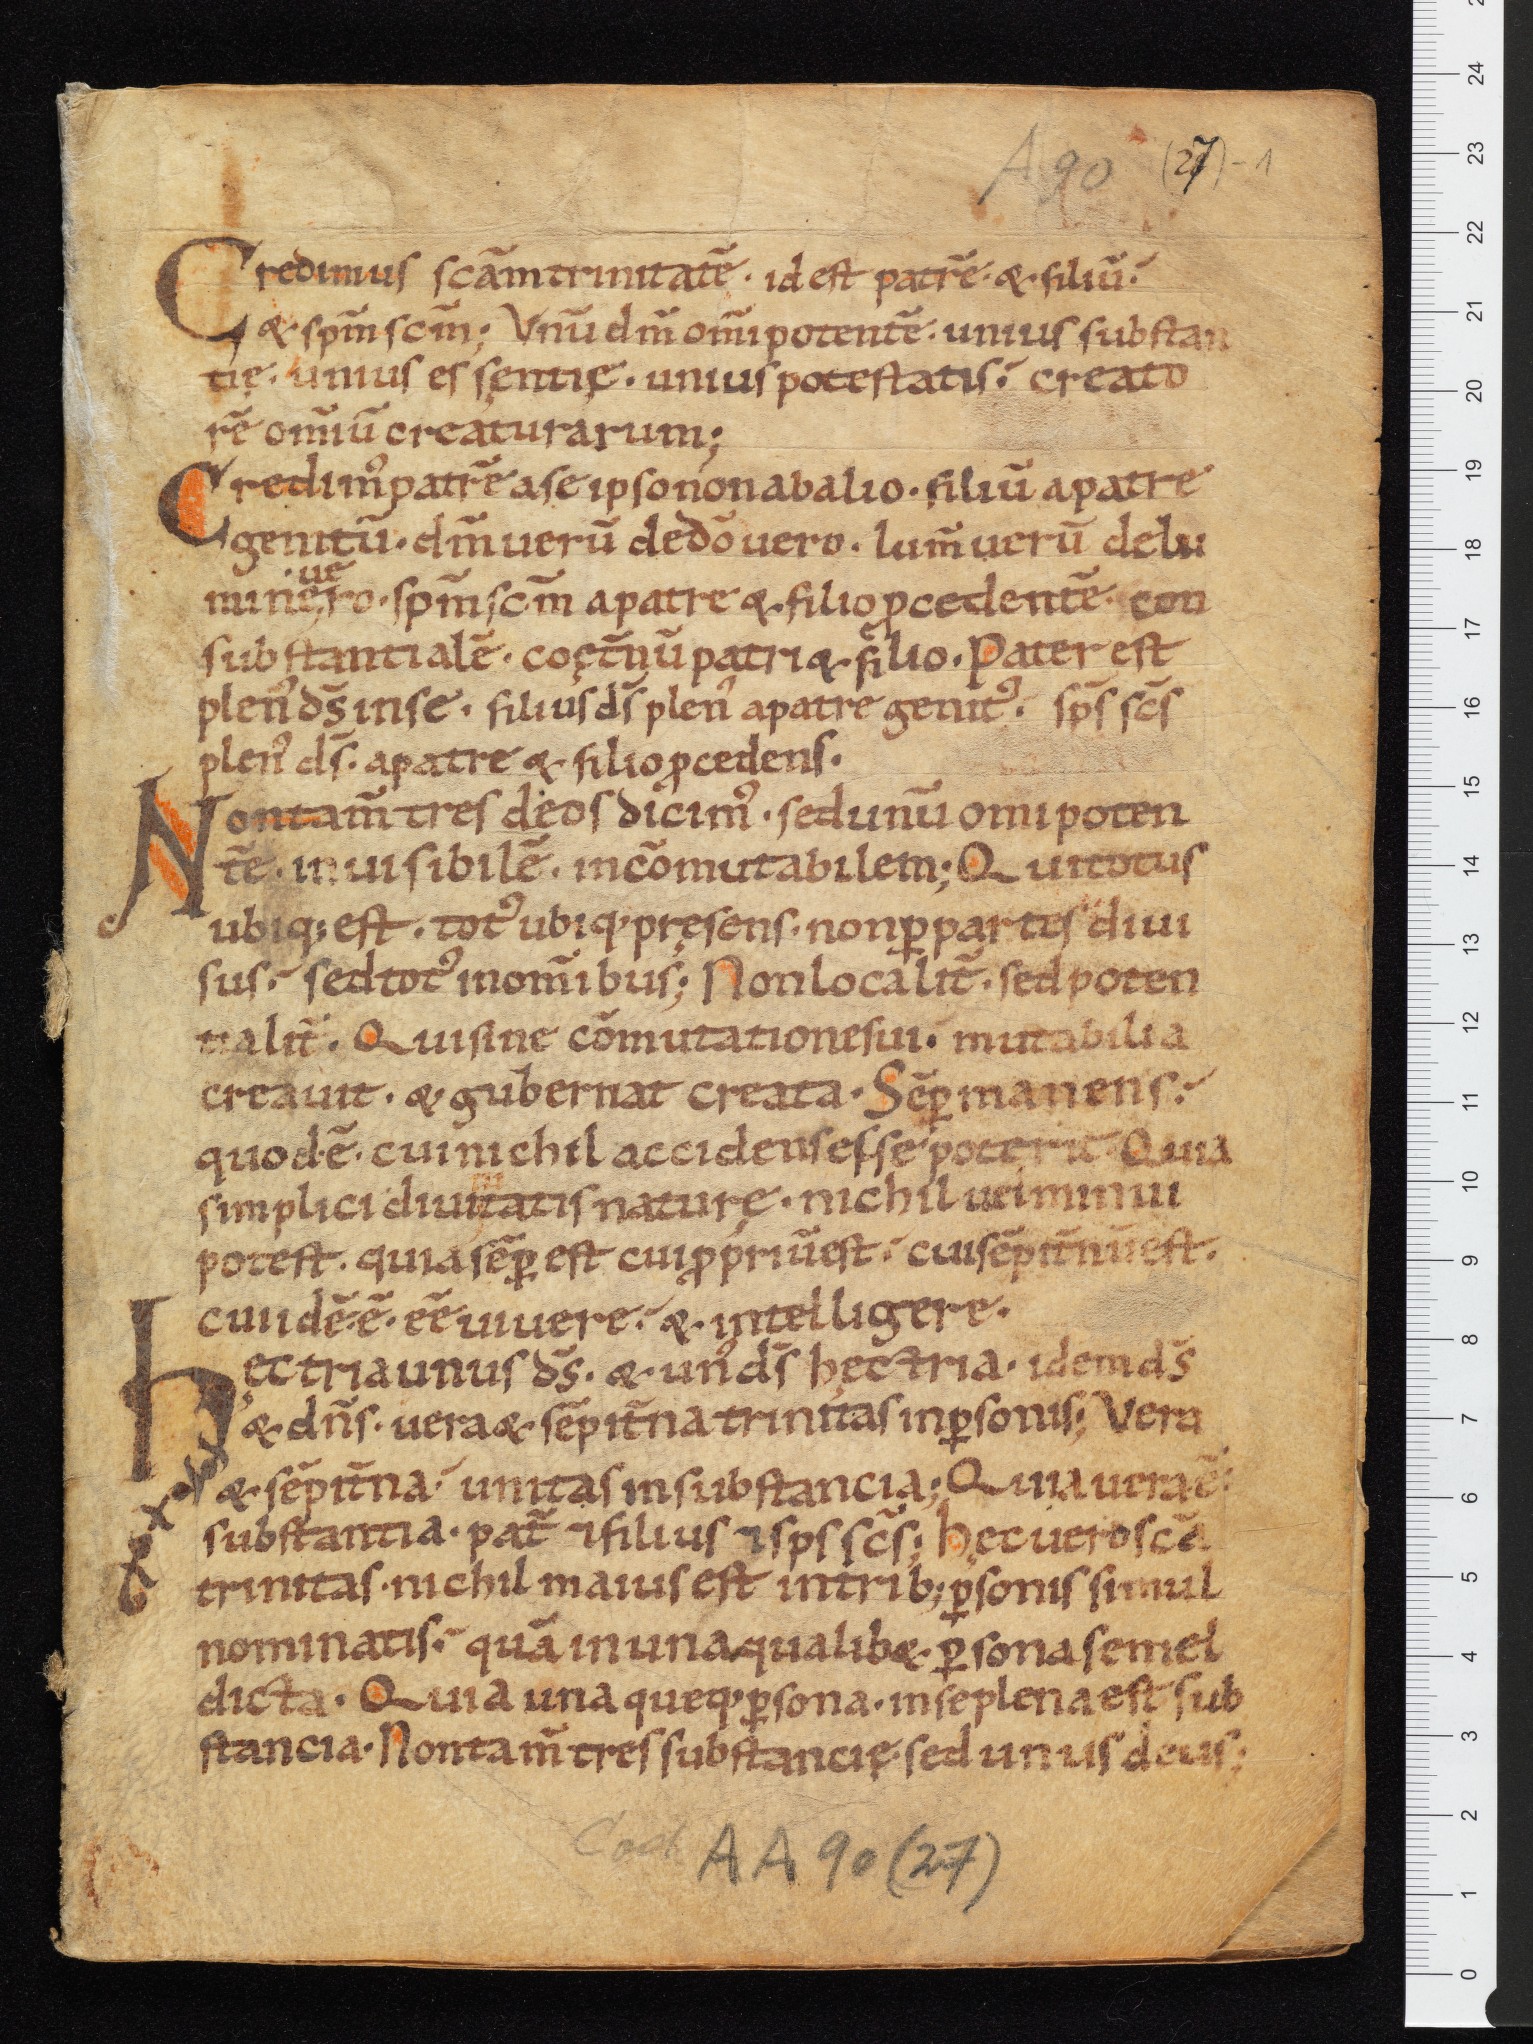 A 90 (27)-1
Credimus scam̄ trinitatē · id est patrē · & · filiū ·
& · spm̄ scm̄; Vnū dm̄ omīpotentē · unius substan
tię · unius es sęntię · unius potestatis · creato
rē omīū creaturarum;
Credimꝰ patrē a se ipso non ab alio · filiū a patre
genitū · dm̄ uerū de dō uero · lum̄ uerū de lu
mine uero · spm̄ scm̄ a patre & · filio ꝓcedentē · con
substantialē · coęt̄nū patri & · filio · Pater est
plenꝰ ds̄ in se · filius ds̄ plenꝰ a patre genitꝰ · sp̄s sc̄s
plenꝰ ds̄ · a patre & · filio ꝓcedens ·
Non tam̄ tres deos dicimꝰ · sed unū omipoten
tē · inuisibilē · incōmutabilem; Qui totus
ubiq; est · totꝰ ubiq; pręsens · non ꝑ partes diui
sus · sed totꝰ in om̄ibus; Non localit̄ · sed poten
tialit̄ · Qui sine cōmutatione sui · mutabilia
creauit · & · gubernat creata · Sēꝑ manens ·
quod · ē · cui nichil accidens esse poterit Quia
simplici diuinitatis naturę · nichil uel minui
potest · quia sēꝑ est cui ꝓpriū est · cui sēpit̄nū est ·
cui idē · ē · eē uiuere · & · intelligere ·
Hęc tria unus ds̄ · & · unꝰ ds̄ hęc tria · idem ds̄
& · dn̄s · uera & · sēpit̄na trinitas in ꝑsonis; Vera
& · sēpit̄na · unitas in substancia; Quia uera ē ·
substantia · pat̄ ⁊ filius ⁊ sps sc̄s; hęc uero scā
trinitas · nichil maius est in trib; ꝑsonis simul
nominatis · quā in una qualib& · ꝑsona semel
dicta · Quia una queq; ꝑsona · in se plena est sub
stancia · Non tam̄ tres substancię · sed unus deus;
Cod. AA 90 (27)
24
23
22
21
20
19
18
17
16
15
14
13
12
11
10
9
8
7
6
5
4
3
2
1
0